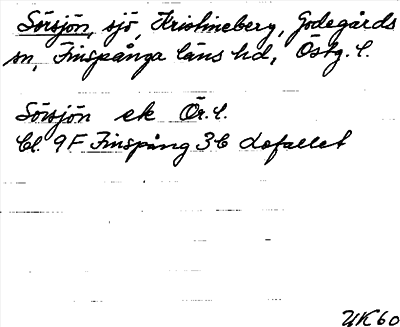 Sörsjön, sjö, Kristineberg, Godegårds
sn, Finspånga läns hd, Östg. l.
Sörsjön ek Ör. l.
Bl. 9F Finspång 3b Lofallet
UK60